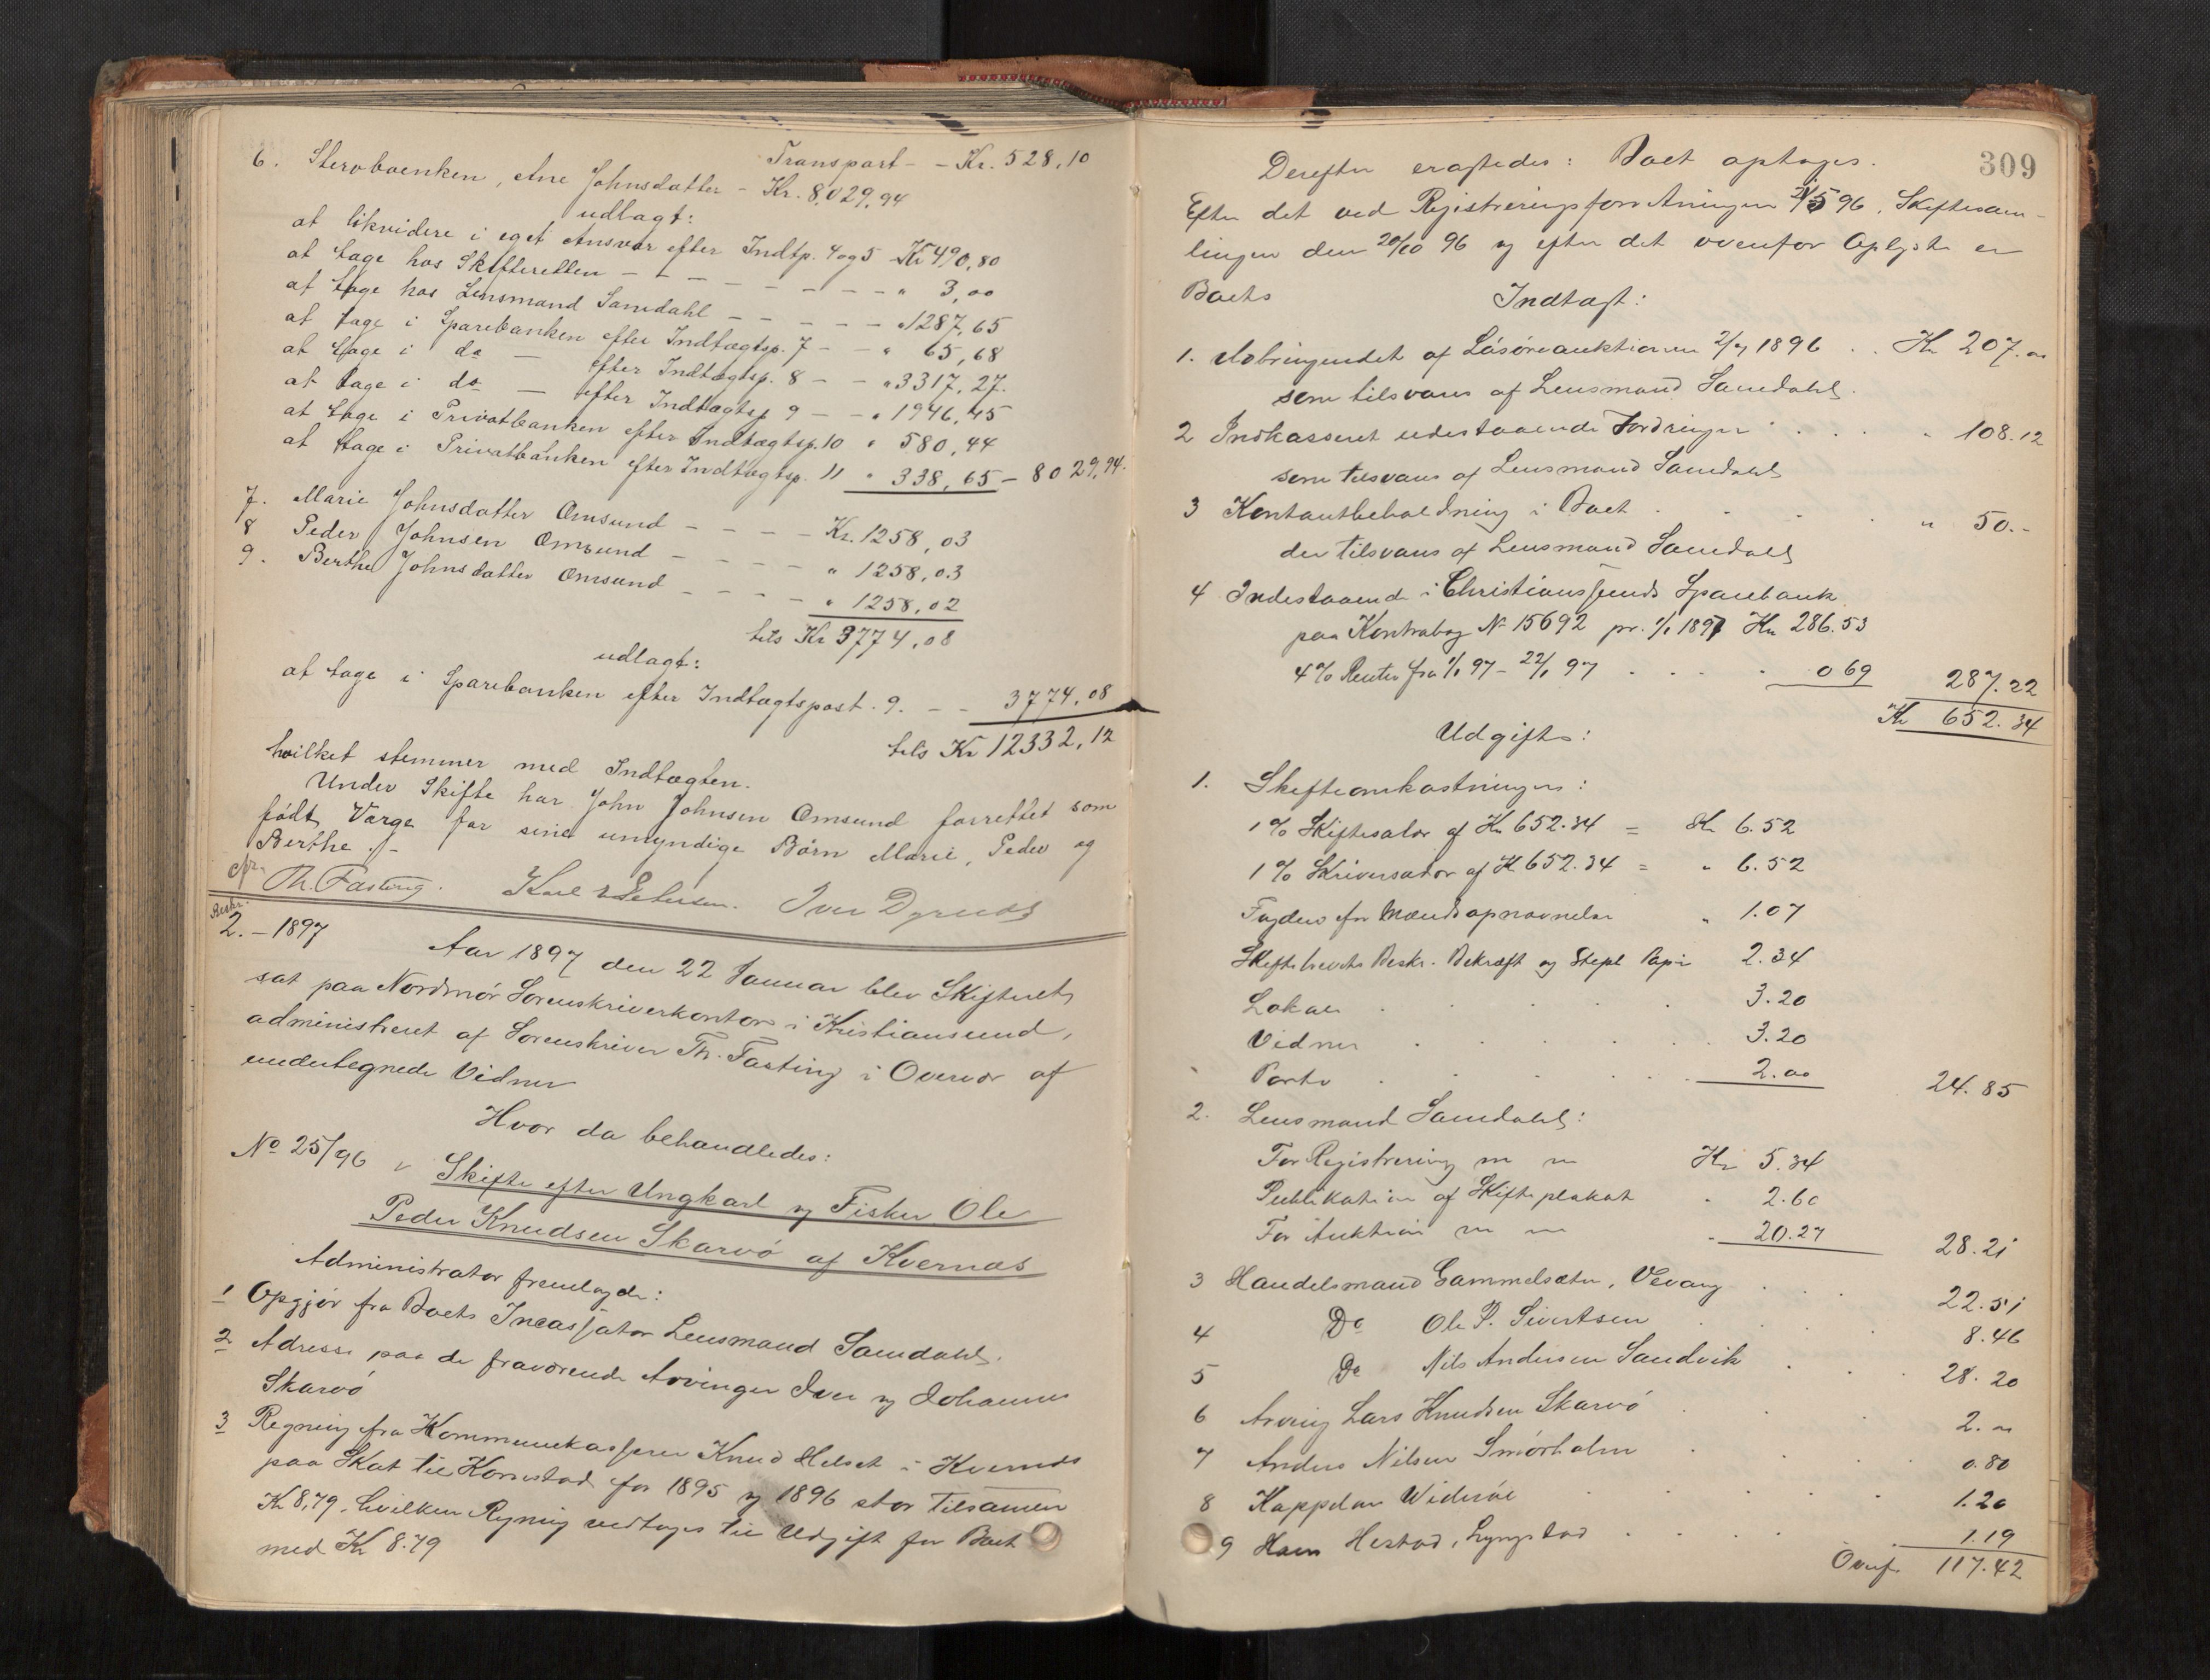 Transport - - Kr. 528,10
6. Stervboenken, Ane Johnsdatter - Kr. 8,029,94
udlagt:
at likvidere i eget Ansvar efter Indtp. 4 og 5 - Kr 490,80
at tage hos Skifteretten - - - - - - - - " 3,00
at tage hos Lensmand Sandahl - - - - - " 1287,65
at tage i Sparebanken efter Indtægtsp. 7 - - " 65,68
at tage i do - efter Indtægtsp. 8 - - " 3317,27.
at tage i do - efter Indtægtsp 9 - - " 1946,45
at tage i Privatbanken efter Indtægtsp. 10 " 580,44
at tage i Privatbanken efter Indtægtsp. 11 " 338,65 - 8029,94.
7. Marie Johnsdatter Omsund - - - - Kr. 1258,03
8 Peder Johnsen Omsund - - - - " 1258,03
9. Berthe Johnsdatter Omsund - - - - " 1258,02
tils Kr 3774,08
udlagt:
at tage i Sparebanken efter Indtægtspost. 9. - - 3774,08
tils Kr 12332,12
hvilket stemmer med Indtægten.
Under Skifte har John Johnsen Omsund forrettet som
født Værge for sine umyndige Børn Marie, Peder og
Berthe. -
Th. Fasting. Karl Petersen. Iver Dyrnæs
Beskr.
2. - 1897
Aar 1897 den 22 Januar blev Skifteret
sat paa Nordmør Sorenskriverkontor i Kristiansund,
administreret af Sorenskriver Th. Fasting i Overvær af
undertegnede Vidner
Hvor da behandledes:
No 25/96 Skifte efter Ungkarl og Fisker Ole
Peder Knudsen Skarvø af Kvernæs
Administrator fremlagde:
1 Opgjør fra Boets Incassator Lensmand Sandahl.
2 Adresse paa de fraværende Arvinger Iver og Johannes
Skarvø
3 Regning fra Kommunekasserer Knud Helset i Kvernæs
paa Skat til Kornstad for 1895 og 1896 stor tilsammen
Kr 8,79, hvilken Regning vedtages til Udgift for Boet
med Kr 8.79
309
Derefter eragtedes: Boet optages.
Efter det ved Registreringsforretningen 21/5 96, Skiftesam-
lingen den 20/10 96 og efter det ovenfor Oplyste er
Boets Indtægt:
1. Udbringendet af Løsøreauktionen 2/7 1896 . . Kr 207.00
som tilsvares af Lensmand Sandahl.
2 Indkasseret udestaaende Fordringer . . . . " 108.12
som tilsvares af Lensmand Sandahl
3 Kontantbeholdning i Boet . . . . " 50.-
der tilsvares af Lensmand Sandahl
4 Indestaaende i Christianssunds Sparebank
paa Kontrabog No 15692 pr. 1/1 1897 Kr 286.53
4% Renter fra 1/1 97 - 22/1 97 . . . . 0 69 287.22
Kr 652.34
Udgifter:
1. Skifteomkostninger:
1% Skiftesalær af Kr 652.34 = Kr 6.52
1% Skriversalær af Kr 652.34 = " 6.52
Fogden for Mændsopnævnelse " 1.07
Skiftebrevets Beskr. Bekræft og Stepl Papir 2.34
Lokale . . . . 3.20
Vidner . . . . . 3.20
Porto . . . . . 2.00 24.85
2. Lensmand Sandahl:
For Registrering m m Kr 5.34
Publikation af Skifteplakat " 2.60
For Auktion m m " 20.27 28.21
3 Handelsmand Gammelsæter, Vevang . . . 22.51
4 Do Ole P. Sivertsen . . . 8.46
5 Do Nils Andersen Sandvik . . . 28.20
6 Arving Lars Knudsen Skarvø . . . 2.00
7 Anders Nilsen Smørholm . . . 0.80
8 Kappelan Widerøe . . . . 1.20
9 Hestad, Lyngstad . . . . 1.19
Overf. 117.42